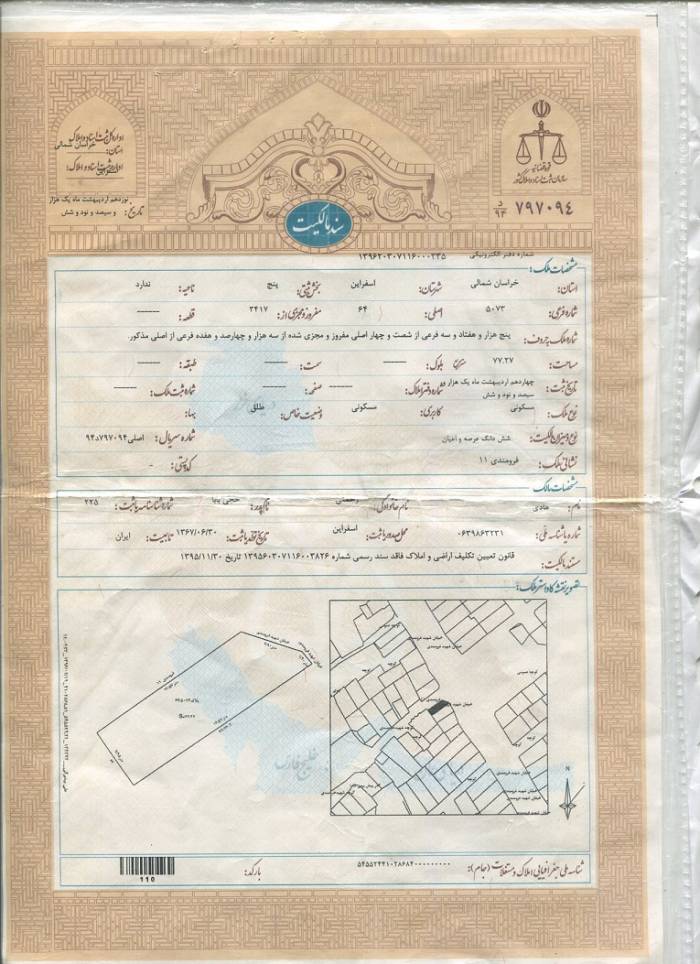 قوه قضائیه
سازمان ثبت اسناد و املاک کشور
اداره کل ثبت اسناد و املاک
استان: خراسان شمالی
اداره ثبت اسناد و املاک: اسفراین
تاریخ: نوزدهم اردیبهشت ماه یک هزار
و سیصد و نود و شش
د
۹۴ ۷۹۷۰۹۴
سند مالکیت
شماره دفتر الکترونیکی ۱۳۹۶۲۰۳۰۷۱۱۶۰۰۰۲۳۵
مشخصات ملک:
استان: خراسان شمالی شهرستان: اسفراین بخش ثبتی: پنج ناحیه: ندارد
شماره فرعی: ۵۰۷۳ اصلی: ۶۴ مفروز و مجزی از: ۳۴۱۷ قطعه: ------
شماره ملک به حروف: پنج هزار و هفتاد و سه فرعی از شصت و چهار اصلی مفروز و مجزی شده از سه هزار و چهارصد و هفده فرعی از اصلی مذکور.
مساحت: ۷۷.۲۷ بلوک: ------ سمت: ------ طبقه: ------
تاریخ ثبت: چهاردهم اردیبهشت ماه یک هزار
سیصد و نود و شش شماره دفتر املاک: ------ صفحه: ------ شماره ثبت ملک: ------
نوع ملک: مسکونی کاربری: مسکونی وضعیت خاص: طلق بهاء:
نوع و میزان مالکیت: شش دانگ عرصه و اعیان شماره سریال: اصلی۷۹۷۰۹۴د۹۴
نشانی ملک: فرومندی ۱۱ کد پستی: -
مشخصات مالک
نام: هادی نام خانوادگی: نام پدر: شماره شناسنامه یا ثبت: ۲۲۵
شماره یا شناسه ملی: ۰۶۳۹۸۶۳۲۳۱ محل صدور یا ثبت: اسفراین تاریخ تولد یا ثبت: ۱۳۶۷/۰۶/۳۰ تابعیت: ایران
مستند مالکیت: قانون تعیین تکلیف اراضی و املاک فاقد سند رسمی شماره ۱۳۹۵۶۰۳۰۷۱۱۶۰۰۳۸۲۶ تاریخ ۱۳۹۵/۱۱/۳۰
تصویر نقشه کاداستر ملک:
خلیج فارس
N
شناسه ملی جغرافیایی املاک و مستغلات (جام): ۵۴۵۵۲۴۴۱۰۲۸۶۸۴۰۰۰۰۰۰۰۰۰
بارکد:
110